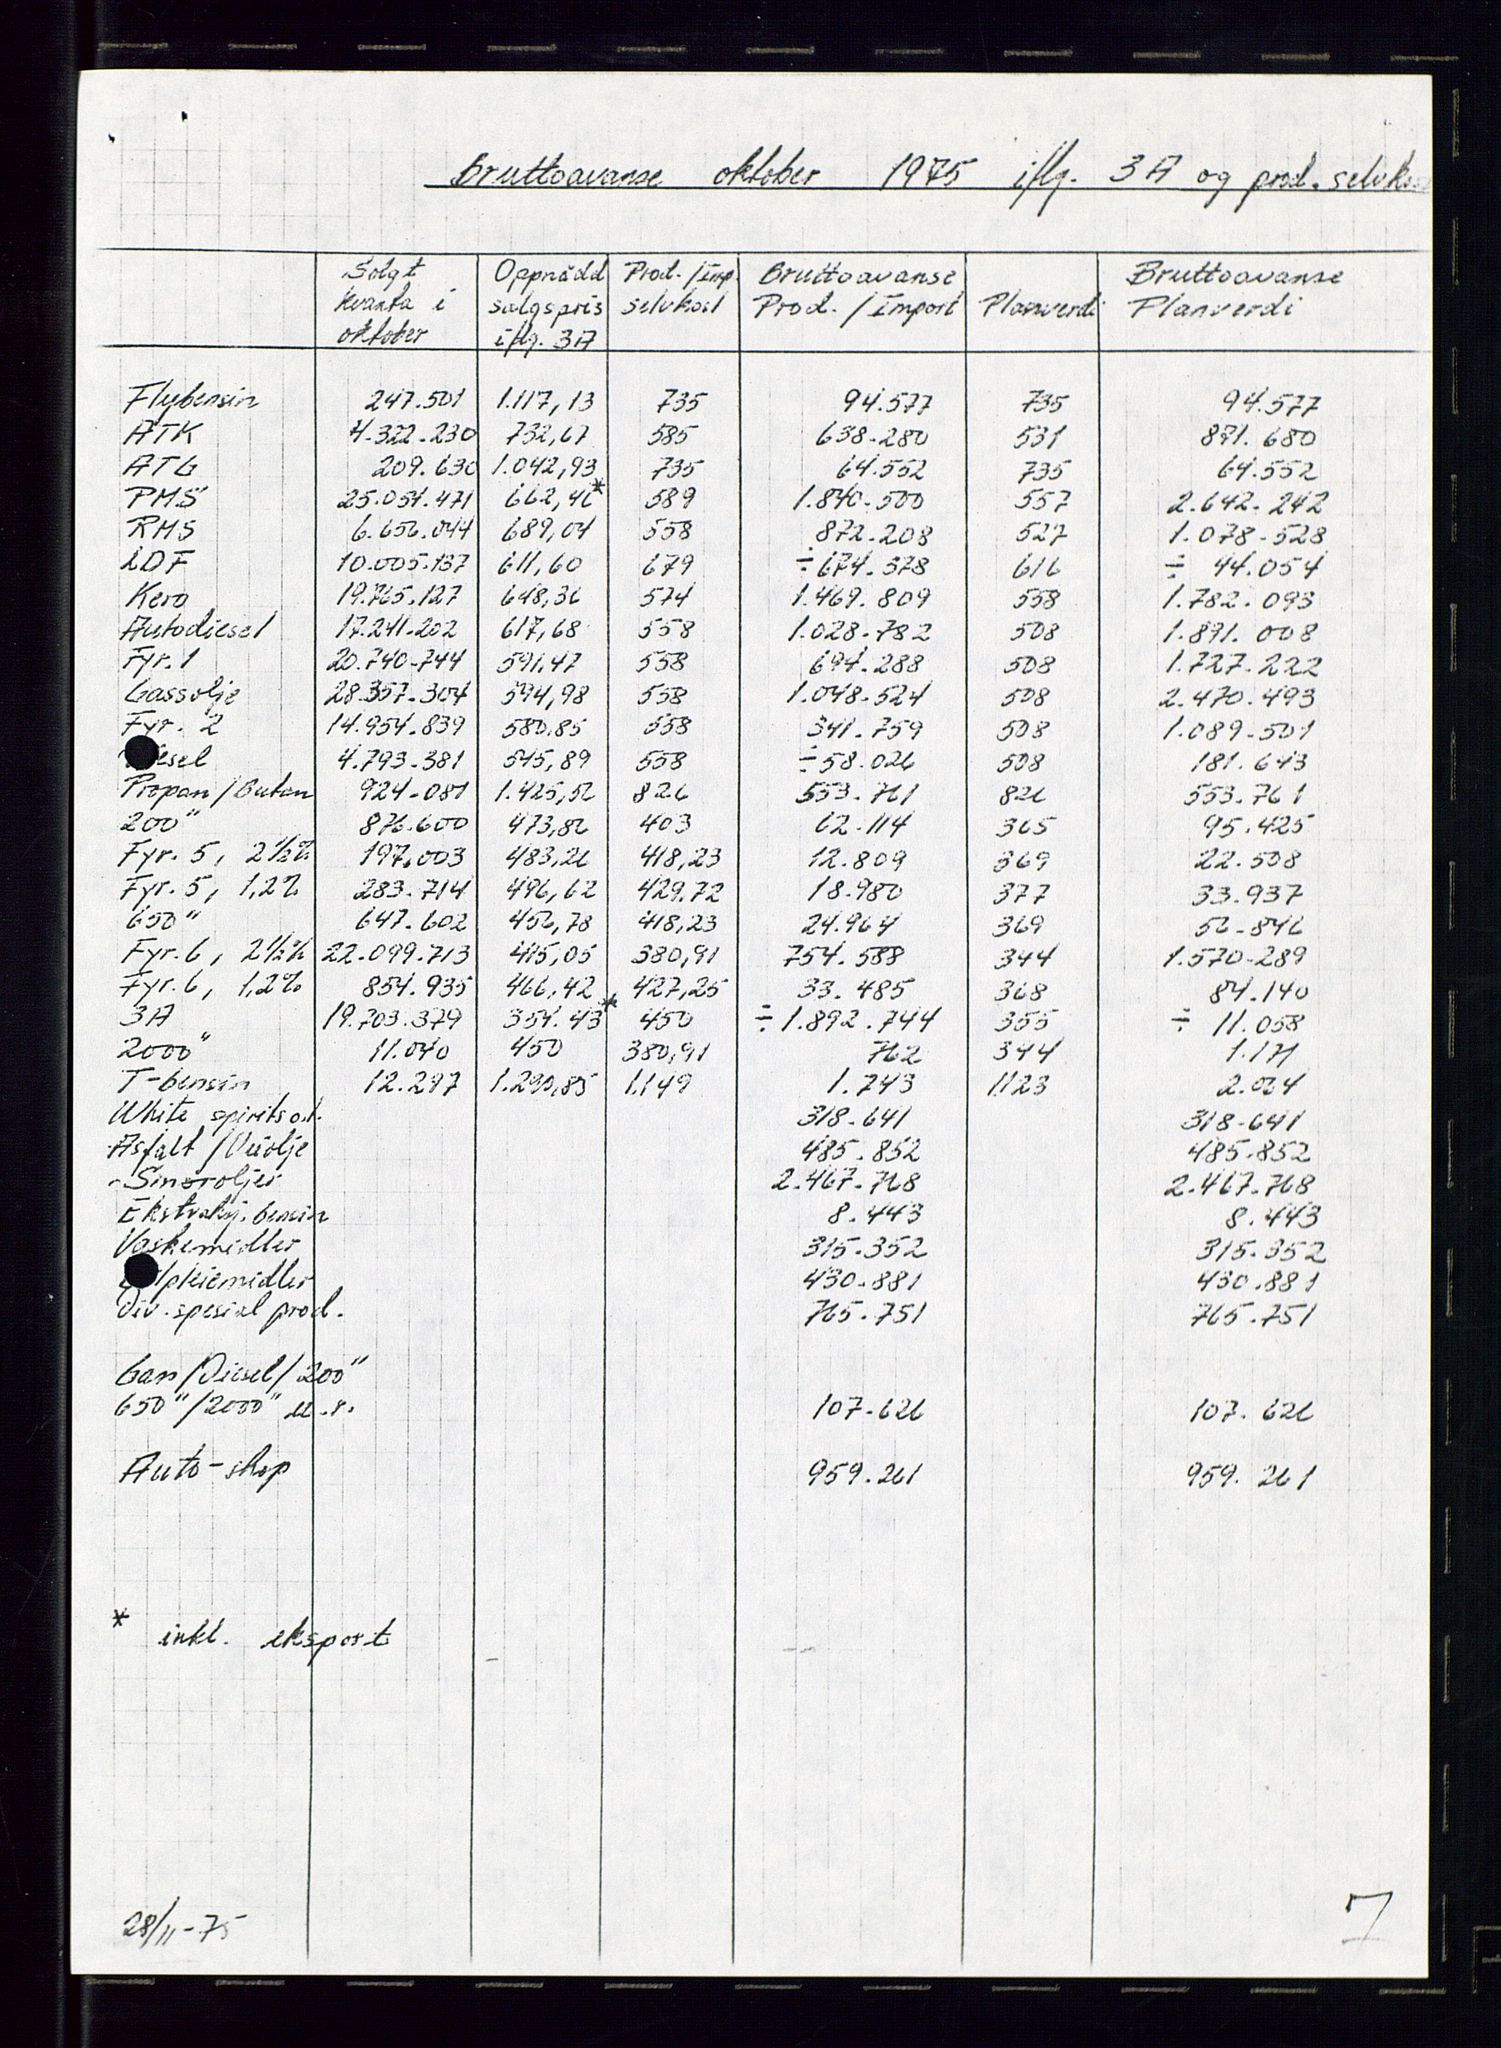 Bruttoavanse oktober 1975 iflg. 3A og prod. selvkos
Solgt kvanta i oktober | Oppnådd salgspris iflg. 3A | Prod./imp. selvkost | Bruttoavanse Prod./import | Planverdi | Bruttoavanse Planverdi
Flybensin 247.501 1.117,13 735 94.577 735 94.577
ATK 4.322.230 732,67 585 638.280 531 871.680
ATG 209.630 1.042,93 735 64.552 735 64.552
PMS 25.054.471 662,46* 589 1.840.500 557 2.642.242
RMS 6.656.044 689,04 558 872.208 527 1.078.528
LDF 10.005.137 611,60 679 ÷ 674.378 616 ÷ 44.054
Kero 19.765.127 648,36 574 1.469.809 558 1.782.093
Autodiesel 17.241.202 617,68 558 1.028.782 508 1.891.008
Fyr. 1 20.740.744 591,47 558 694.288 508 1.727.222
Gassolje 28.357.304 594,98 558 1.048.524 508 2.470.493
Fyr. 2 14.954.839 580,85 558 341.759 508 1.089.501
esel 4.793.381 545,89 558 ÷ 58.026 508 181.643
Propan/Butan 924.081 1.425,52 826 553.761 826 553.761
200" 876.600 473,86 403 62.114 365 95.425
Fyr. 5, 2 1/2% 197.003 483,26 418,23 12.809 369 22.508
Fyr. 5, 1,2% 283.714 496,62 429.72 18.980 377 33.937
650" 647.602 456,78 418,23 24.964 369 56.846
Fyr. 6, 2 1/2% 22.099.713 415,05 380,91 754.588 344 1.570.289
Fyr. 6, 1,2% 854.935 466,42 427,25 33.485 368 84.140
3A 19.703.379 354.43* 450 ÷ 1.892.744 355 ÷ 11.058
2000" 11.040 450 380,91 762 344 1.171
T-bensin 12.287 1.290,85 1.149 1.743 1123 2.064
White spirit o.l. 318.641 318.641
Asfalt/Veiolje 485.852 485.852
Smøroljer 2.467.768 2.467.768
Ekstrakj. bensin 8.443 8.443
Vaskemidler 315.352 315.352
midler 430.881 430.881
Div. spesial prod. 765.751 765.751
Gass/Diesel/200"
650"/2000" u.r. 107.626 107.626
Auto-shop 959.261 959.261
* inkl. eksport
28/11-75
7